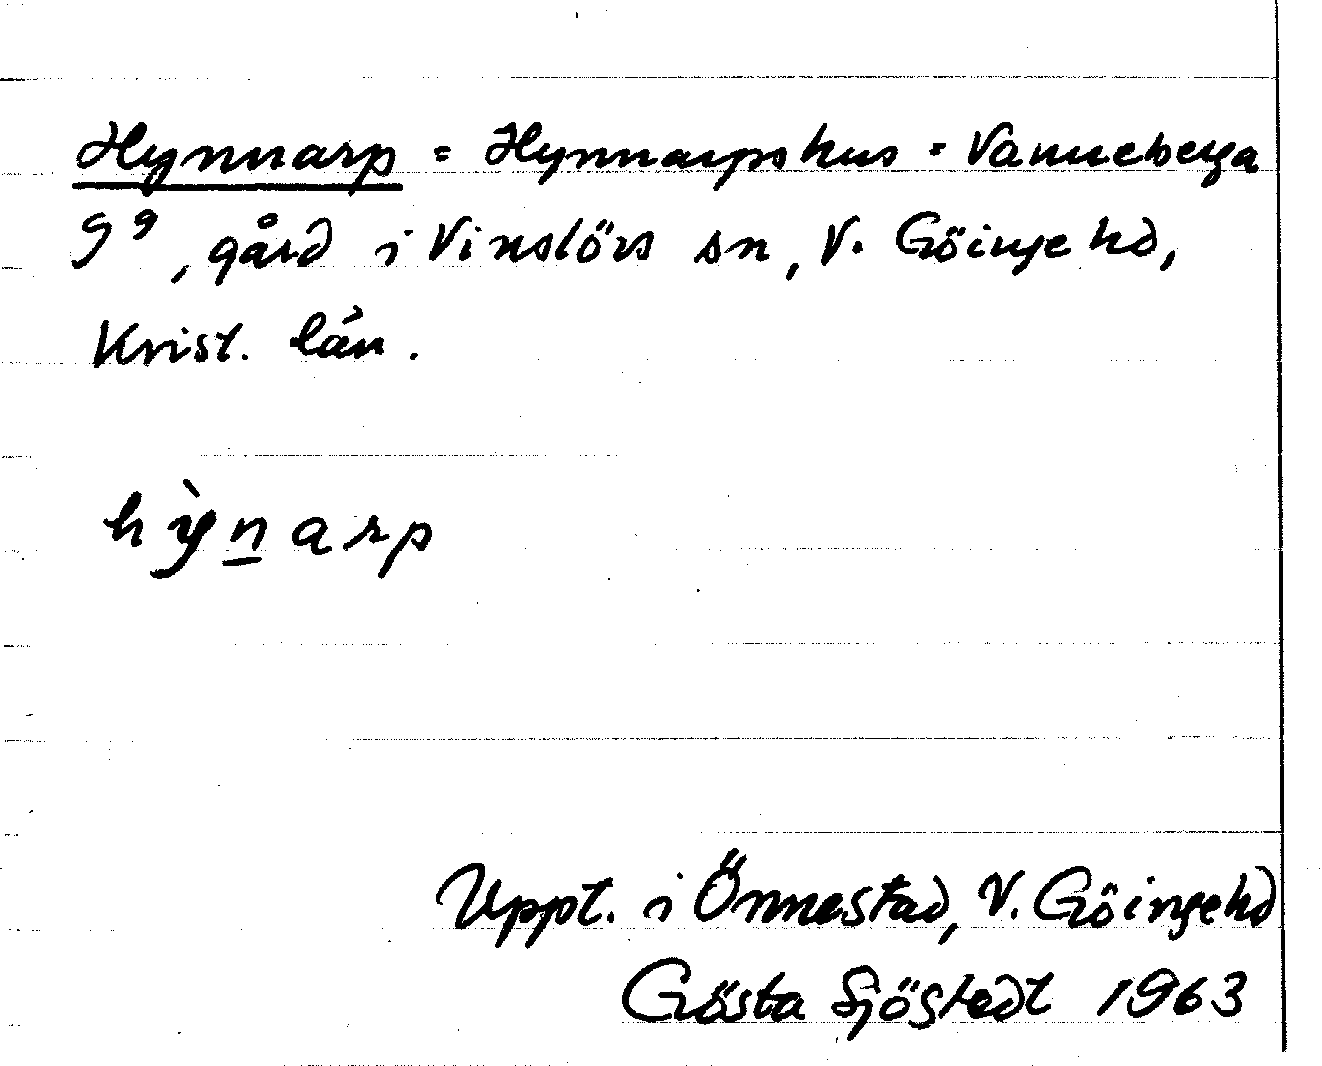 Hynnarp = Hynnarpshus = Vanneberga
9⁹, gård i Vinslövs sn, V. Göinge hd,
Krist. län.
hỳn̲arp
Uppt. i Önnestad, V. Göinge hd
Gösta Sjöstedt 1963